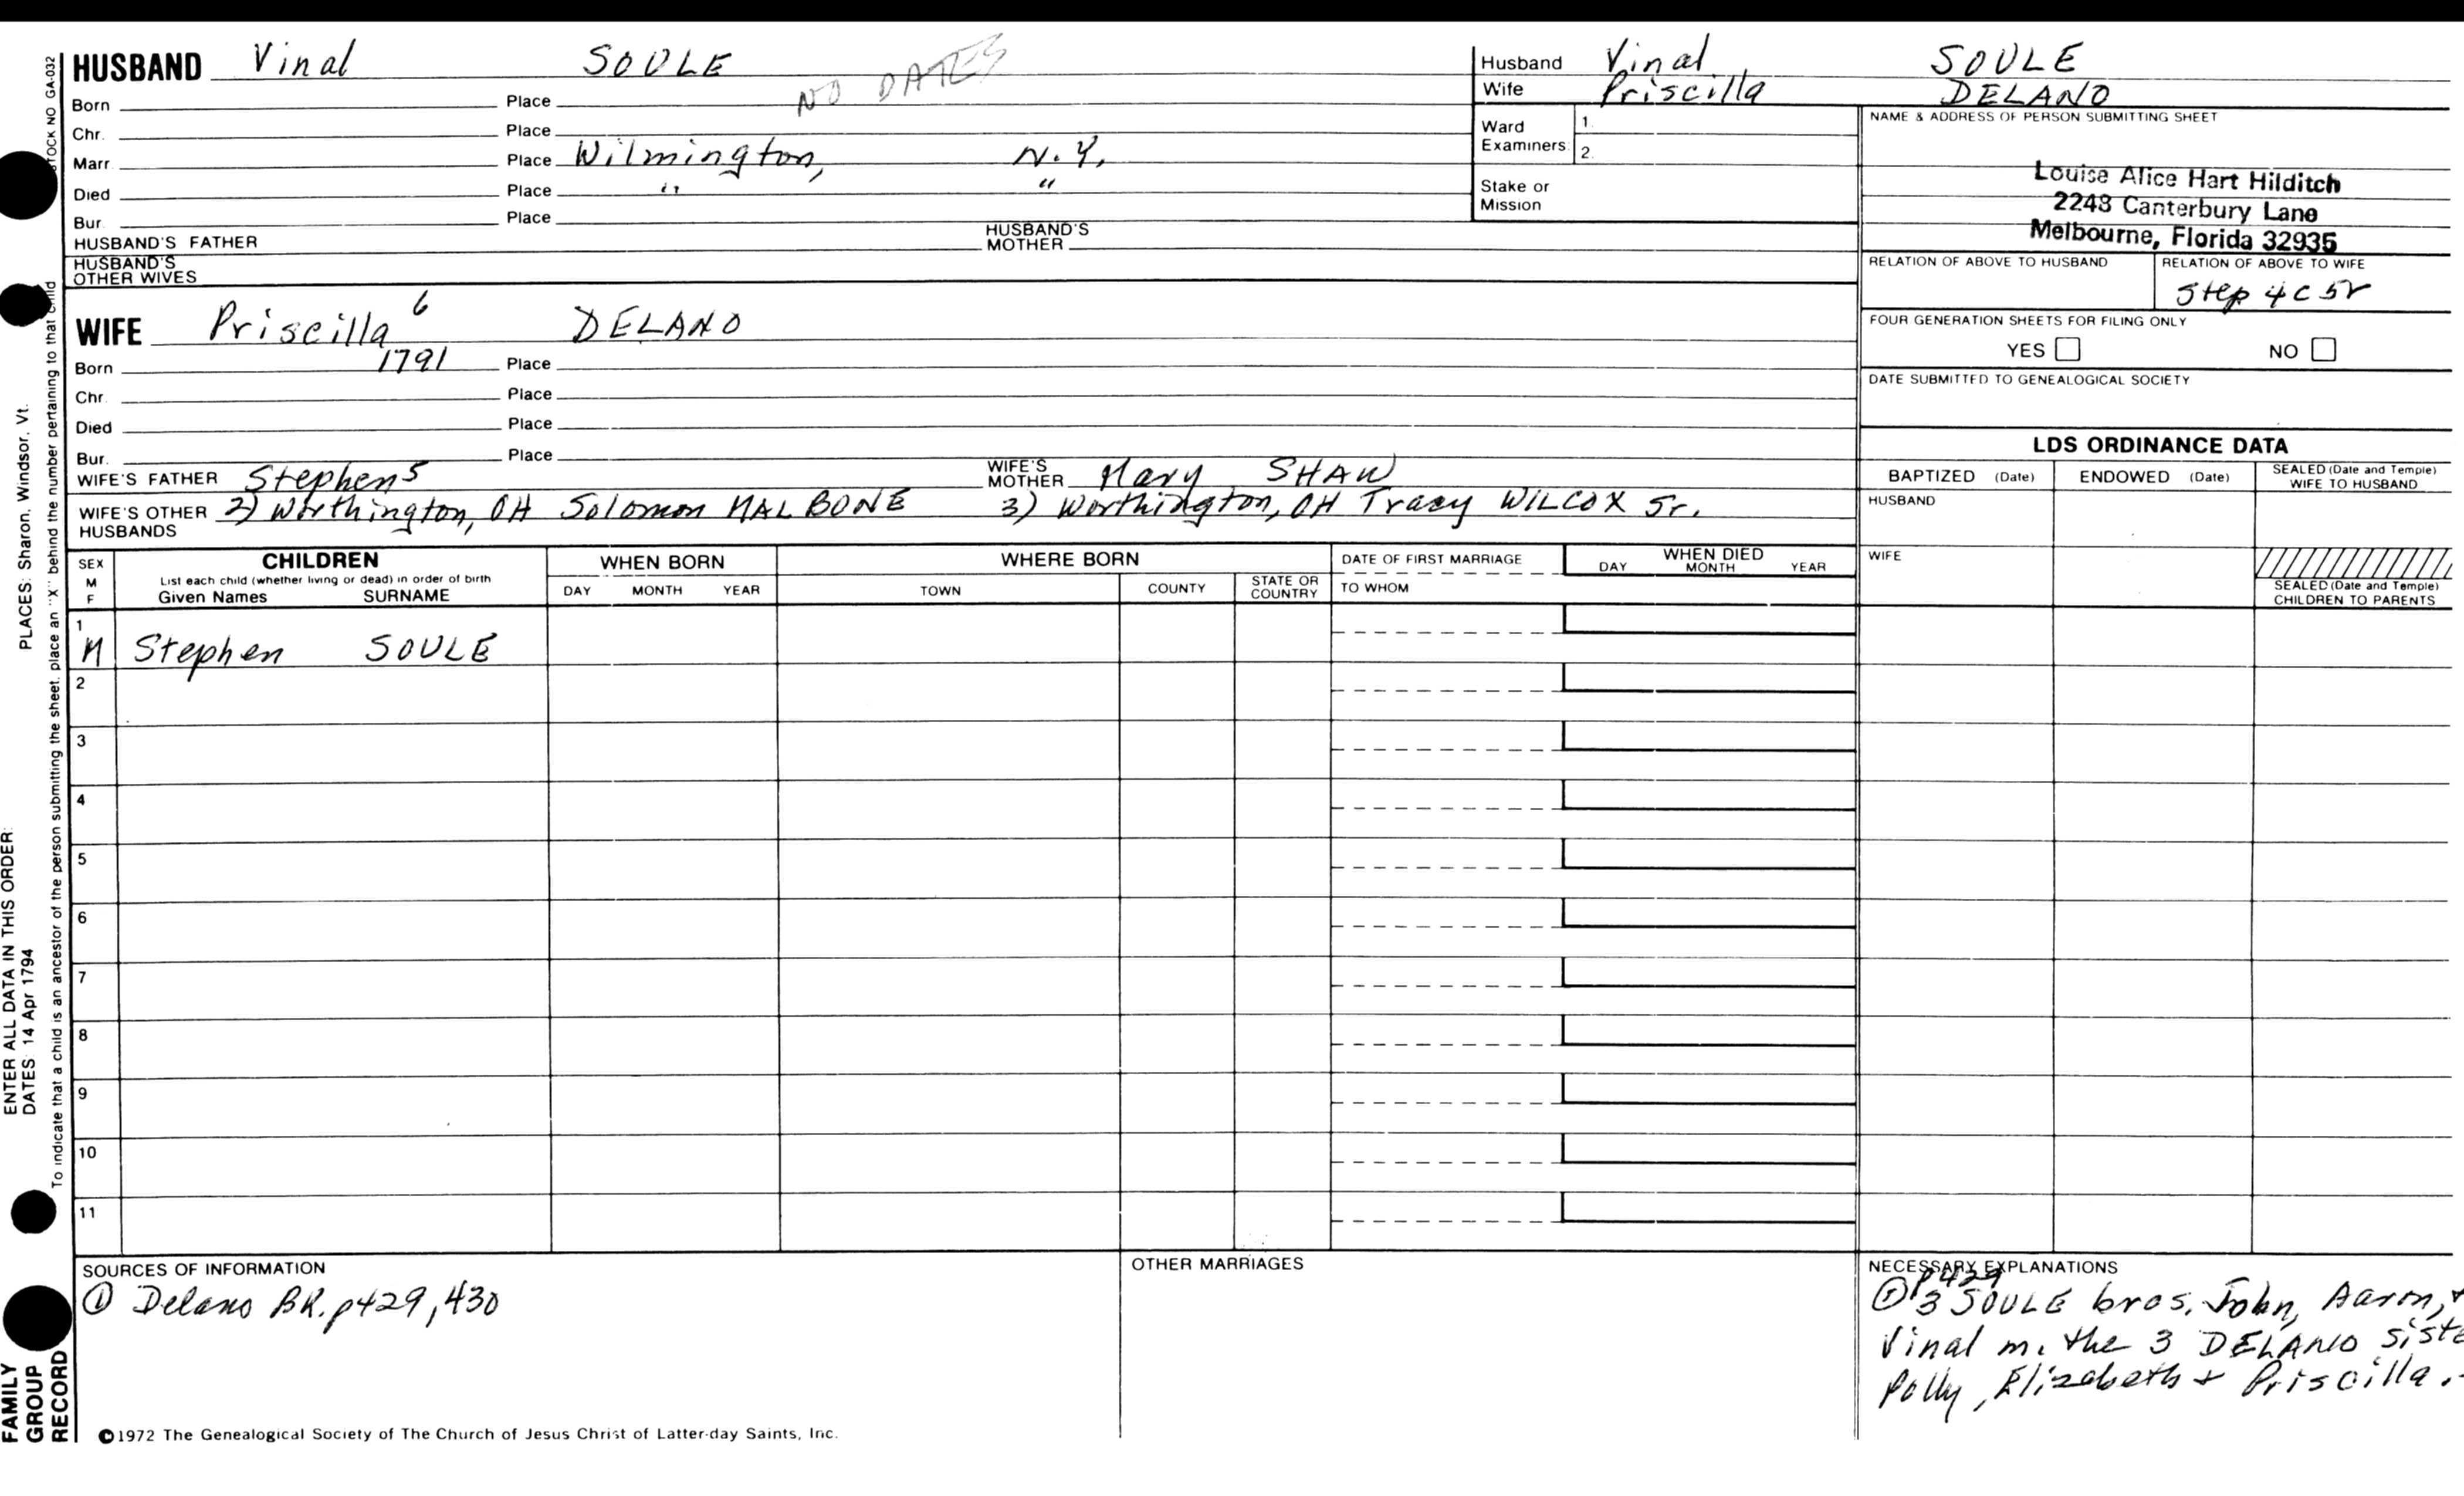 HUSBAND Vinal SOULE
NO DATES
Born Place
Chr. Place
Marr. Place Wilmington, N.Y.
Died Place " "
Bur. Place
HUSBAND'S FATHER HUSBAND'S MOTHER
HUSBAND'S OTHER WIVES
WIFE Priscilla 6 DELANO
Born 1791 Place
Chr. Place
Died Place
Bur. Place
WIFE'S FATHER Stephen 5 WIFE'S MOTHER Mary SHAW
WIFE'S OTHER HUSBANDS 2) Worthington, OH Solomon MALBONE 3) Worthington, OH Tracy WILCOX Sr.
Husband Vinal SOULE
Wife Priscilla DELANO
Ward Examiners 1. 2.
Stake or Mission
NAME & ADDRESS OF PERSON SUBMITTING SHEET
Louise Alice Hart Hilditch
2248 Canterbury Lane
Melbourne, Florida 32935
RELATION OF ABOVE TO HUSBAND RELATION OF ABOVE TO WIFE
Step 4C5r
FOUR GENERATION SHEETS FOR FILING ONLY
YES NO
DATE SUBMITTED TO GENEALOGICAL SOCIETY
LDS ORDINANCE DATA
BAPTIZED (Date) ENDOWED (Date) SEALED (Date and Temple) WIFE TO HUSBAND
HUSBAND
WIFE
SEALED (Date and Temple) CHILDREN TO PARENTS
SEX M F
CHILDREN
List each child (whether living or dead) in order of birth
Given Names SURNAME
WHEN BORN
DAY MONTH YEAR
WHERE BORN
TOWN COUNTY STATE OR COUNTRY
DATE OF FIRST MARRIAGE
TO WHOM
WHEN DIED
DAY MONTH YEAR
1
M Stephen SOULE
2
3
4
5
6
7
8
9
10
11
SOURCES OF INFORMATION
① Delano BK. p429, 430
OTHER MARRIAGES
NECESSARY EXPLANATIONS
① p429
3 SOULE bros. John, Aaron, +
Vinal m. the 3 DELANO siste
Polly, Elizabeth + Priscilla.
©1972 The Genealogical Society of The Church of Jesus Christ of Latter-day Saints, Inc.
FAMILY
GROUP
RECORD
ENTER ALL DATA IN THIS ORDER:
DATES: 14 Apr 1794 PLACES: Sharon, Windsor, Vt.
To indicate that a child is an ancestor of the person submitting the sheet, place an "X" behind the number pertaining to that child
STOCK NO GA-032